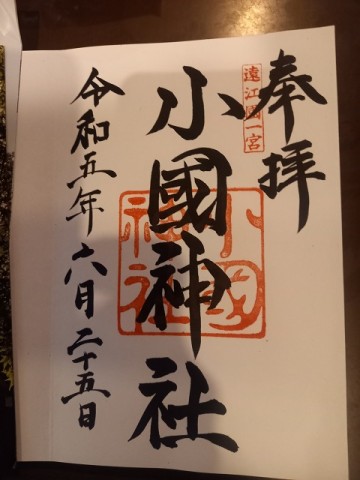 奉拝
遠江國一宮
小國神社
小國神社
令和五年六月二十五日